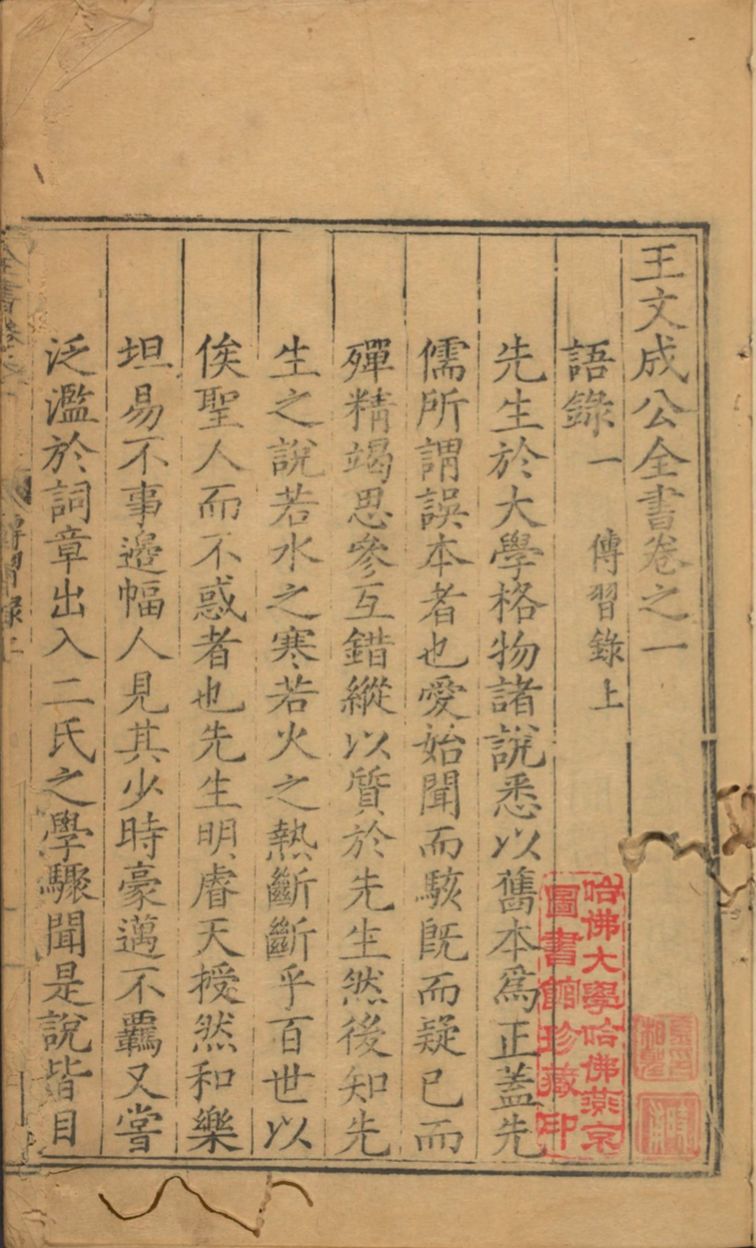 王文成公全書卷之一
語錄一 傳習錄上
先生於大學格物諸說悉以舊本爲正蓋先
儒所謂誤本者也愛始聞而駭旣而疑已而
殫精竭思參互錯縱以質於先生然後知先
生之說若水之寒若火之熱斷斷乎百世以
俟聖人而不惑者也先生明睿天授然和樂
坦易不事邊幅人見其少時豪邁不羈又嘗
泛濫於詞章出入二氏之學驟聞是說皆目
全書卷
傳習錄上
哈佛大學哈佛燕京
圖書館珍藏印